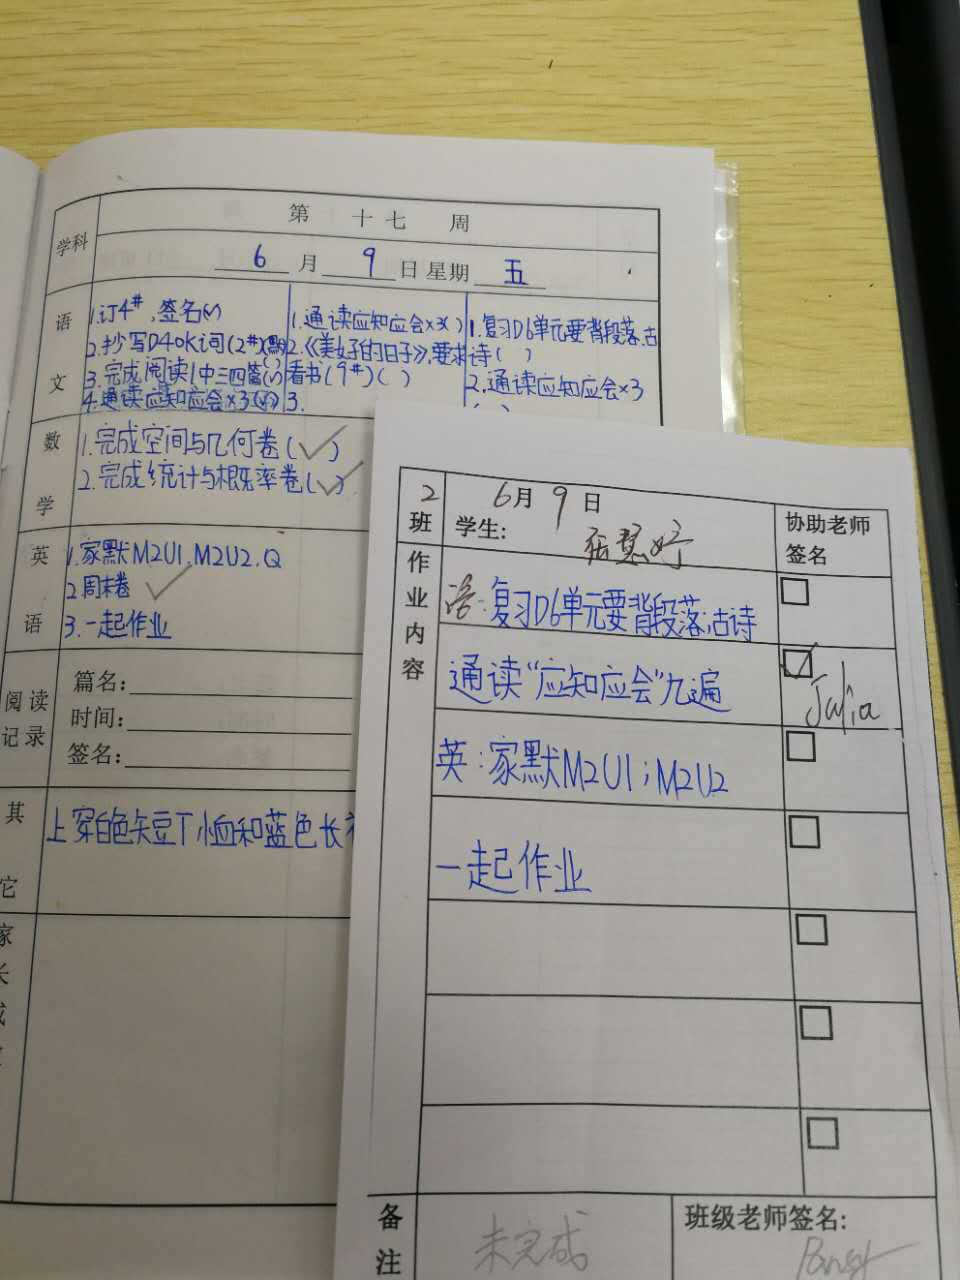 第 十七 周
学科
6 月 9 日 星期 五
语文
1.订4#,签名(√)
2.抄写D4OK词(2#)
3.完成阅读1中三四篇(√)
4.通读应知应会×3(√)
1.通读应知应会×3( )
2.《美好的日子》,要求
看书(9#)( )
3.
1.复习D6单元要背段落,古
诗( )
2.通读应知应会×3
( )
数学
1.完成空间与几何卷(√)
2.完成统计与概率卷(√)
英语
1.家默M2U1.M2U2.Q
2.周末卷 √
3.一起作业
阅读记录
篇名:
时间:
签名:
其它
上穿白色短T恤和蓝色长
家长或
2班
6月9日
学生: 张慧婷
协助老师签名
作业内容
语:复习D6单元要背段落,古诗
通读“应知应会”九遍
√ Julia
英:家默M2U1;M2U2
一起作业
备注
未完成
班级老师签名: